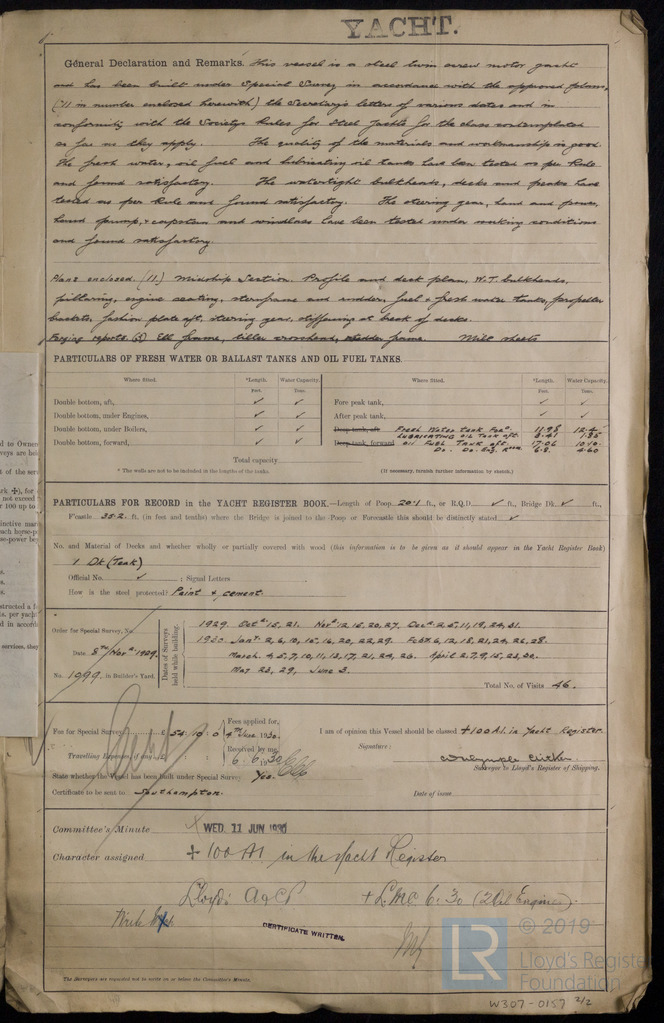 YACHT.
General Declaration and Remarks. This vessel is a steel twin screw motor yacht
and has been built under Special Survey in accordance with the approved plans,
(11 in number enclosed herewith) the Secretary's letters of various dates and in
conformity with the Society's Rules for Steel Yachts for the class contemplated
as far as they apply. The quality of the materials and workmanship is good.
The fresh water, oil fuel and lubricating oil tanks have been tested as per Rule
and found satisfactory. The watertight bulkheads, decks and peaks have
tested as per Rule and found satisfactory. The steering gear, hand and power,
hand pump, & capstan and windlass have been tested under working conditions
and found satisfactory.
Plans enclosed. (11.) Midship Section. Profile and deck plan, W.T. bulkheads,
pillaring, engine seating, sternframe and rudder, fuel & fresh water tanks, propeller
brackets, fashion plate aft, steering gear, stiffening at break of decks.
Forging reports (3) frame, tiller crosshead, rudder frame. Mill sheets
PARTICULARS OF FRESH WATER OR BALLAST TANKS AND OIL FUEL TANKS.
Where Sited. *Length. Water Capacity. Where Sited. *Length. Water Capacity.
Feet. Tons. Feet. Tons.
Double bottom, aft, ✓ ✓ Fore peak tank, ✓ ✓
Double bottom, under Engines, ✓ ✓ After peak tank, ✓ ✓
Double bottom, under Boilers, ✓ ✓ Deep tank, aft Fresh Water Tank For'd 11.98 12.4
LUBRICATING OIL Tank aft. 3.41 1.35
Double bottom, forward, ✓ ✓ Deep tank, forward OIL FUEL TANK aft. 17.06 10.10
Do. Do. Eng. Room 6.8 4.60
Total capacity
* The wells are not to be included in the lengths of the tanks. (If necessary, furnish further information by sketch.)
PARTICULARS FOR RECORD in the YACHT REGISTER BOOK.—Length of Poop 20.1 ft., or R.Q.D. ✓ ft., Bridge Dk ✓ ft.,
F'castle 35.2 ft. (in feet and tenths) where the Bridge is joined to the Poop or Forecastle this should be distinctly stated ✓
No. and Material of Decks and whether wholly or partially covered with wood (this information is to be given as it should appear in the Yacht Register Book)
1 Dk (Teak)
Official No. ✓ ; Signal Letters
How is the steel protected? Paint & cement.
Order for Special Survey, No.
Date 8th Novr 1929.
No. 1099 in Builder's Yard.
Dates of Surveys held while building.
1929. Octr 15, 21. Novr 12, 15, 20, 27. Decr 2, 5, 11, 19, 24, 31.
1930. Jany 2, 6, 10, 15, 16, 20, 22, 29. Feby 6, 12, 18, 21, 24, 26, 28.
March. 4, 5, 7, 10, 11, 13, 17, 21, 24, 26. April 2, 7, 9, 15, 23, 30.
May 23, 29, June 3.
Total No. of Visits 46.
Fee for Special Survey £ 54 : 10 : 0
Fees applied for, 4th June 1930.
Received by me,
6. 6. 1930
I am of opinion this Vessel should be classed +100A1. in Yacht Register.
Signature:
Travelling Expenses, if any £ : :
Surveyor to Lloyd's Register of Shipping.
State whether the Vessel has been built under Special Survey Yes.
Certificate to be sent to Southampton.
Date of issue
Committee's Minute WED. 11 JUN 1930
Character assigned + 100 A1 in the Yacht Register
Lloyd's A&CP + LMC 6.30 (2 Oil Engines)
CERTIFICATE WRITTEN.
The Surveyors are requested not to write on or below the Committee's Minute.
LR
© 2019
Lloyd's Register
Foundation
W307-0157 2/2